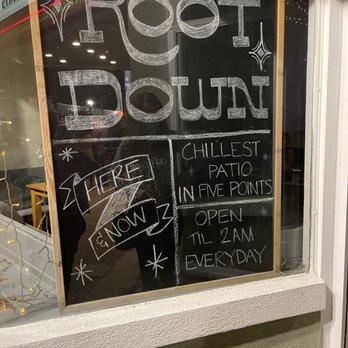 ROOT
DOWN
HERE
& NOW
CHILLEST
PATIO
IN FIVE POINTS
OPEN
TIL 2AM
EVERYDAY